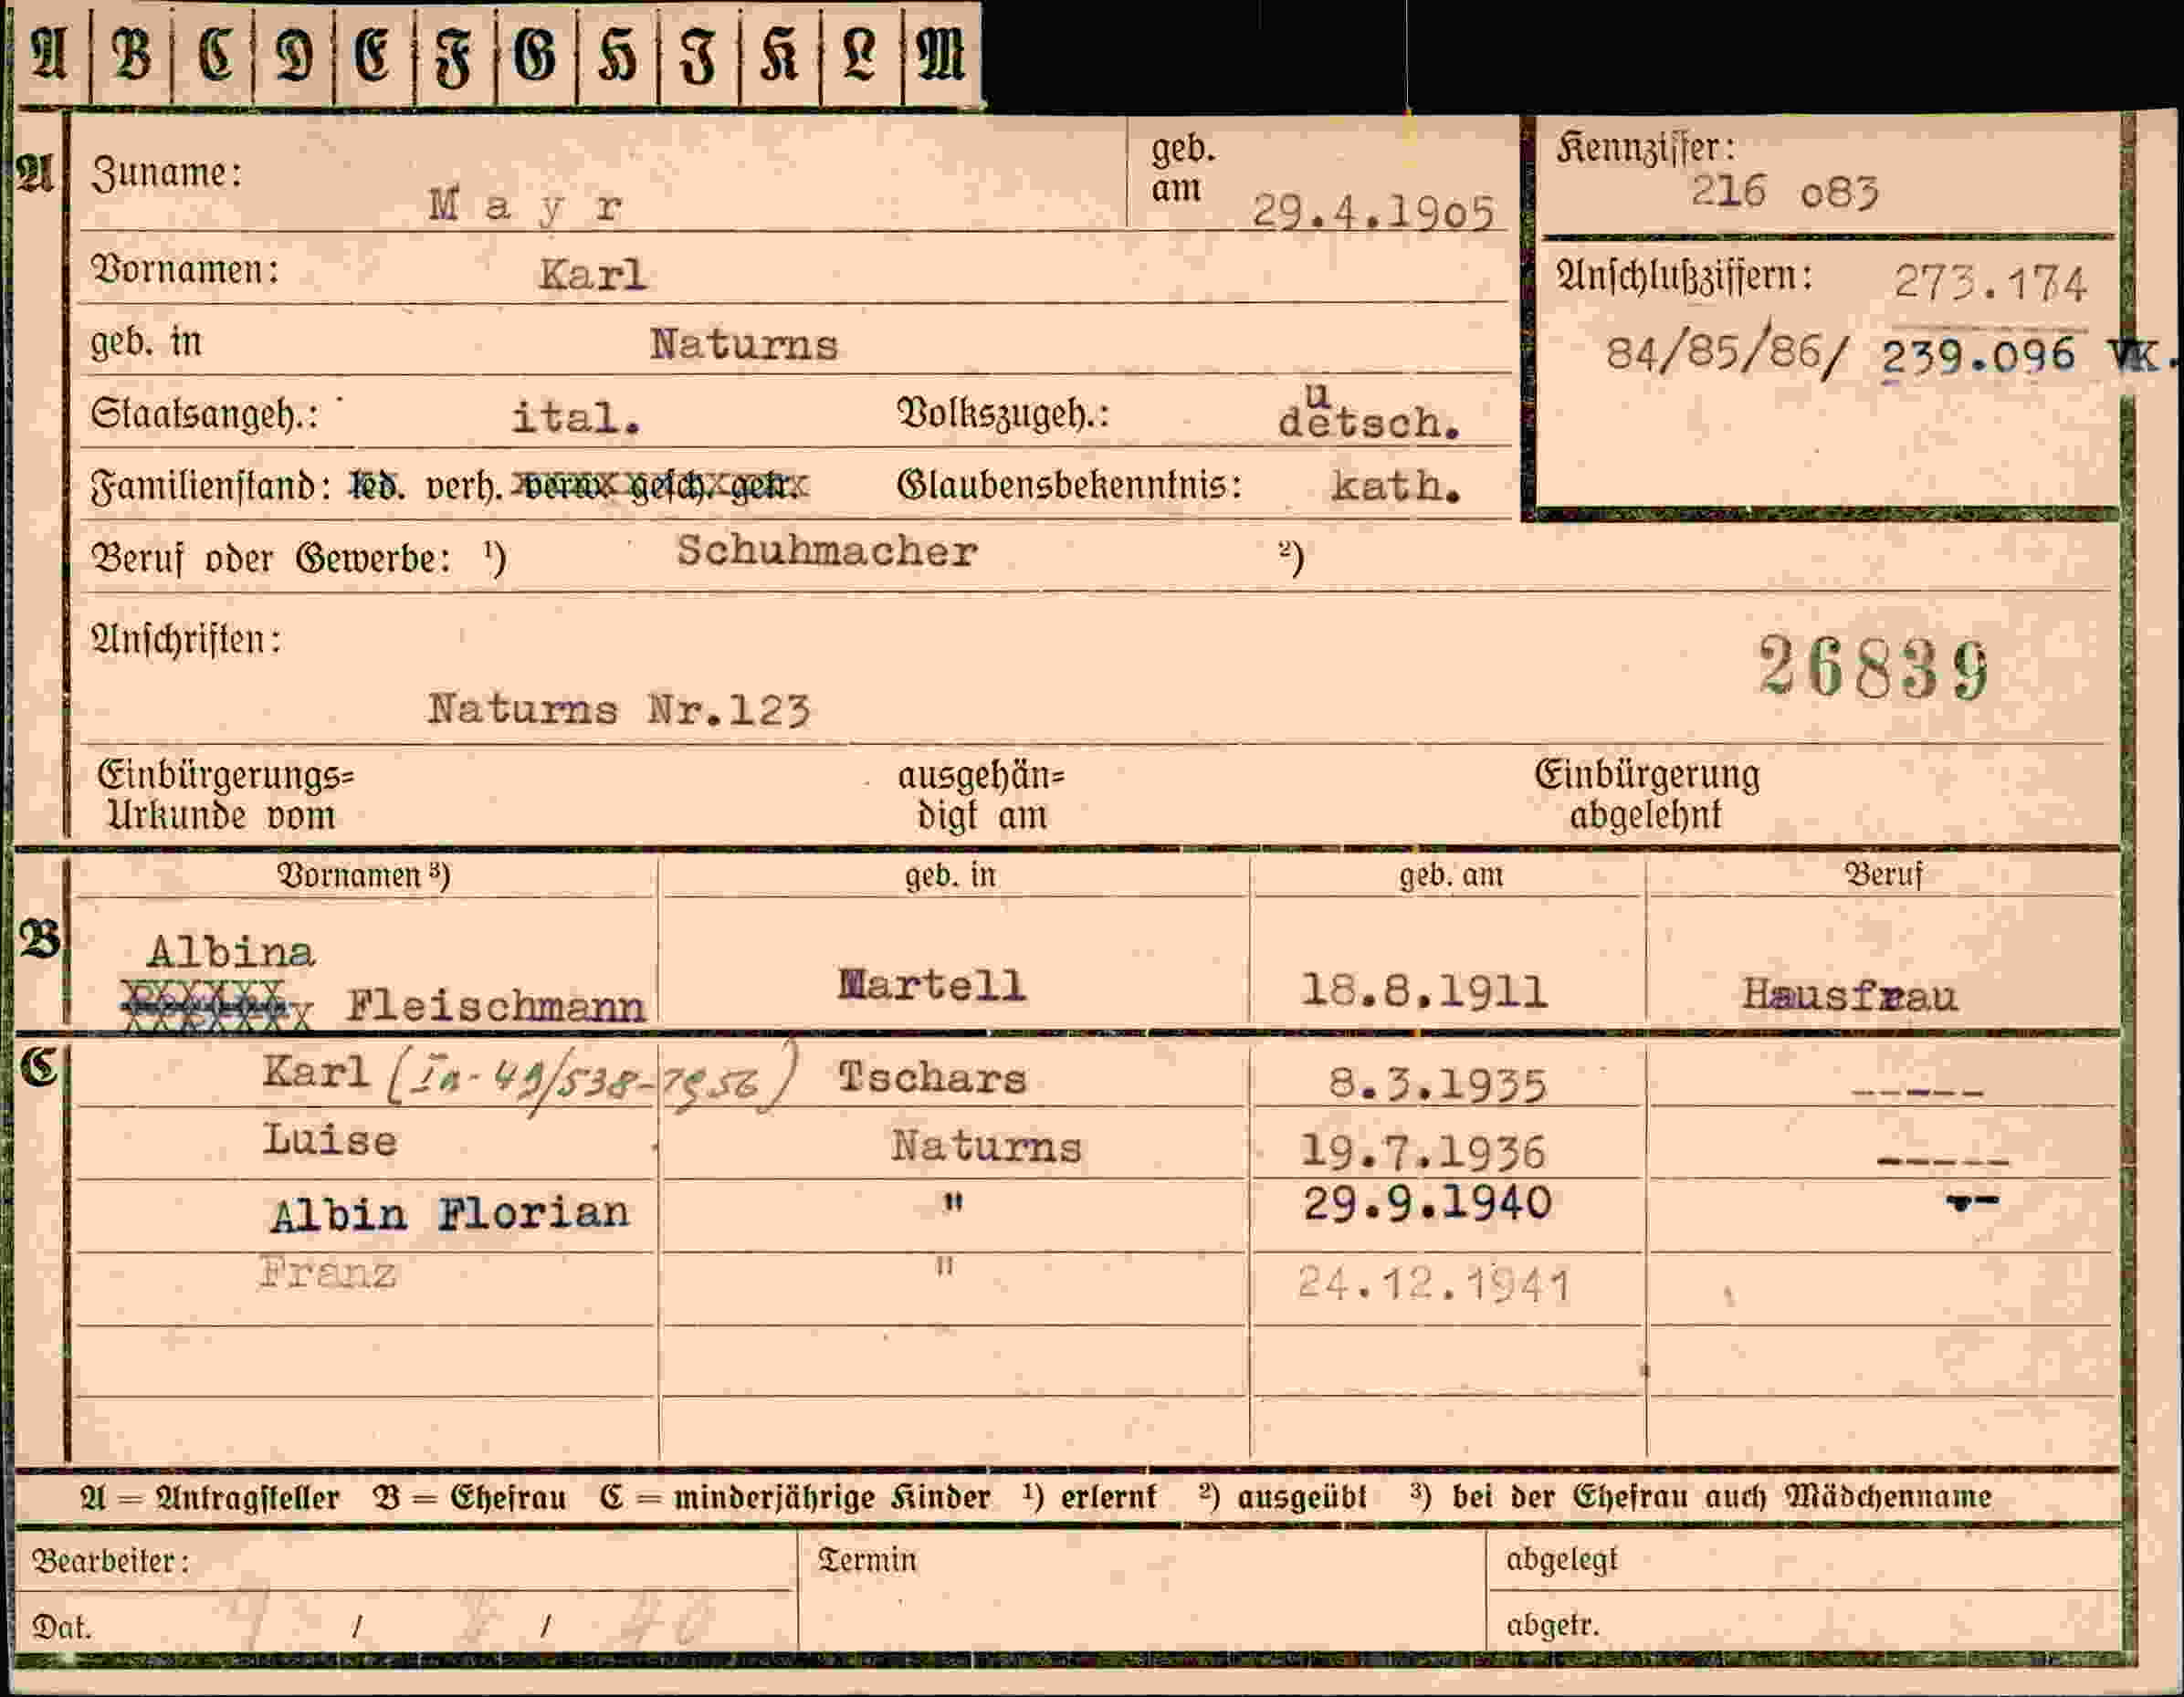 A B C D E F G H I K L M
A Zuname: Mayr geb. am 29.4.1905
Kennziffer: 216 083
Vornamen: Karl
Anschlußziffern: 273.174
84/85/86/ 239.096 VK.
geb. in Naturns
Staatsangeh.: ital. Volkszugeh.: detsch.
u
Familienstand: led. verh. verw. gesch. getr. Glaubensbekenntnis: kath.
Beruf oder Gewerbe: ¹) Schuhmacher ²)
Anschriften:
26839
Naturns Nr.123
Einbürgerungs=
Urkunde vom
ausgehän=
digt am
Einbürgerung
abgelehnt
Vornamen ³) geb. in geb. am Beruf
B Albina
Fleischmann Martell 18.8.1911 Hausfrau
C Karl Tschars 8.3.1935 -----
Luise Naturns 19.7.1936 -----
Albin Florian " 29.9.1940 --
Franz " 24.12.1941
A = Antragsteller B = Ehefrau C = minderjährige Kinder ¹) erlernt ²) ausgeübt ³) bei der Ehefrau auch Mädchenname
Bearbeiter: Termin abgelegt
Dat. / / abgetr.